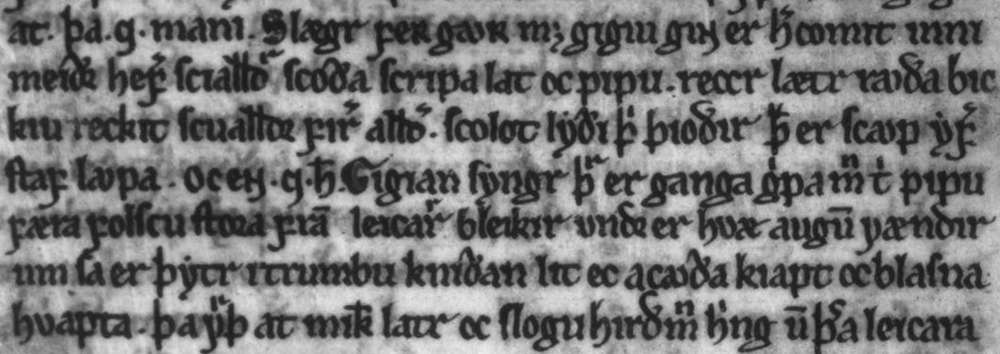 at. þa. q. mani. Slægr ferr gaur mꝫ gigiu giɴ er h͛ comit inni
meiðr hef͛ sciallð͛ scoða scripa lat oc pipu. reccr lætr rauða bic
kiu reckit scualldr fir͛ allð͛. scolot lyði þͥ þioðir þ̄ er scaup yf͛
staf laupa. Oc eɴ. q. h̄. Gigian syngr þʳ er ganga gͥpa m̄ tͥ pipu
færa folscu stora frā leicar͛ bleikir undr er hvæ augū vændir
um sa er þytr itrumbu kniðan lit ec agauða kiapt oc blasna
hvapta. þa uʳþ at mik̄ latr oc slogu hirðm̄ hͥng ū þ͛a leicara